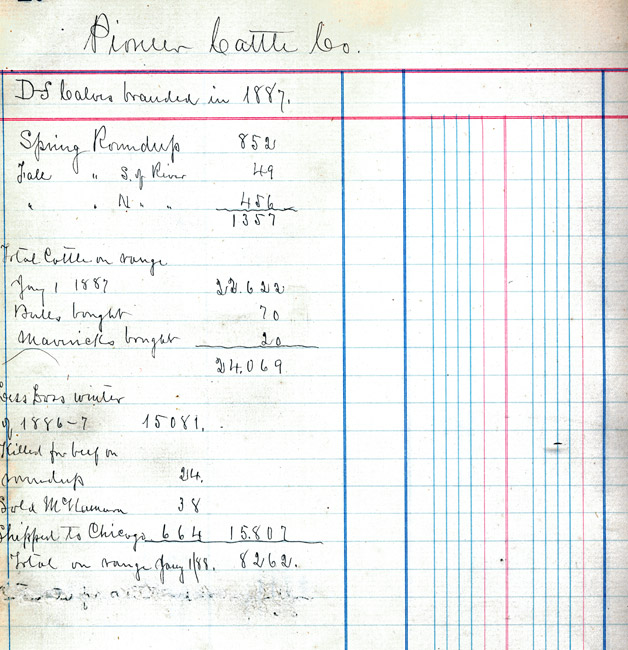 Pioneer Cattle Co.
D-S Calves branded in 1887.
Spring Roundup 852
Fall " S. of River 49
" " N. " " 456
1357
Total Cattle on range
Jany 1 1887 22.622
Bulls bought 70
Mavericks bought 20
24.069
Less Loss winter
of 1886-7 15081.
Killed for beef on
roundup 24.
Sold McNamara 38
Shipped to Chicago 664 15.807
Total on range Jany 1/88. 8262.